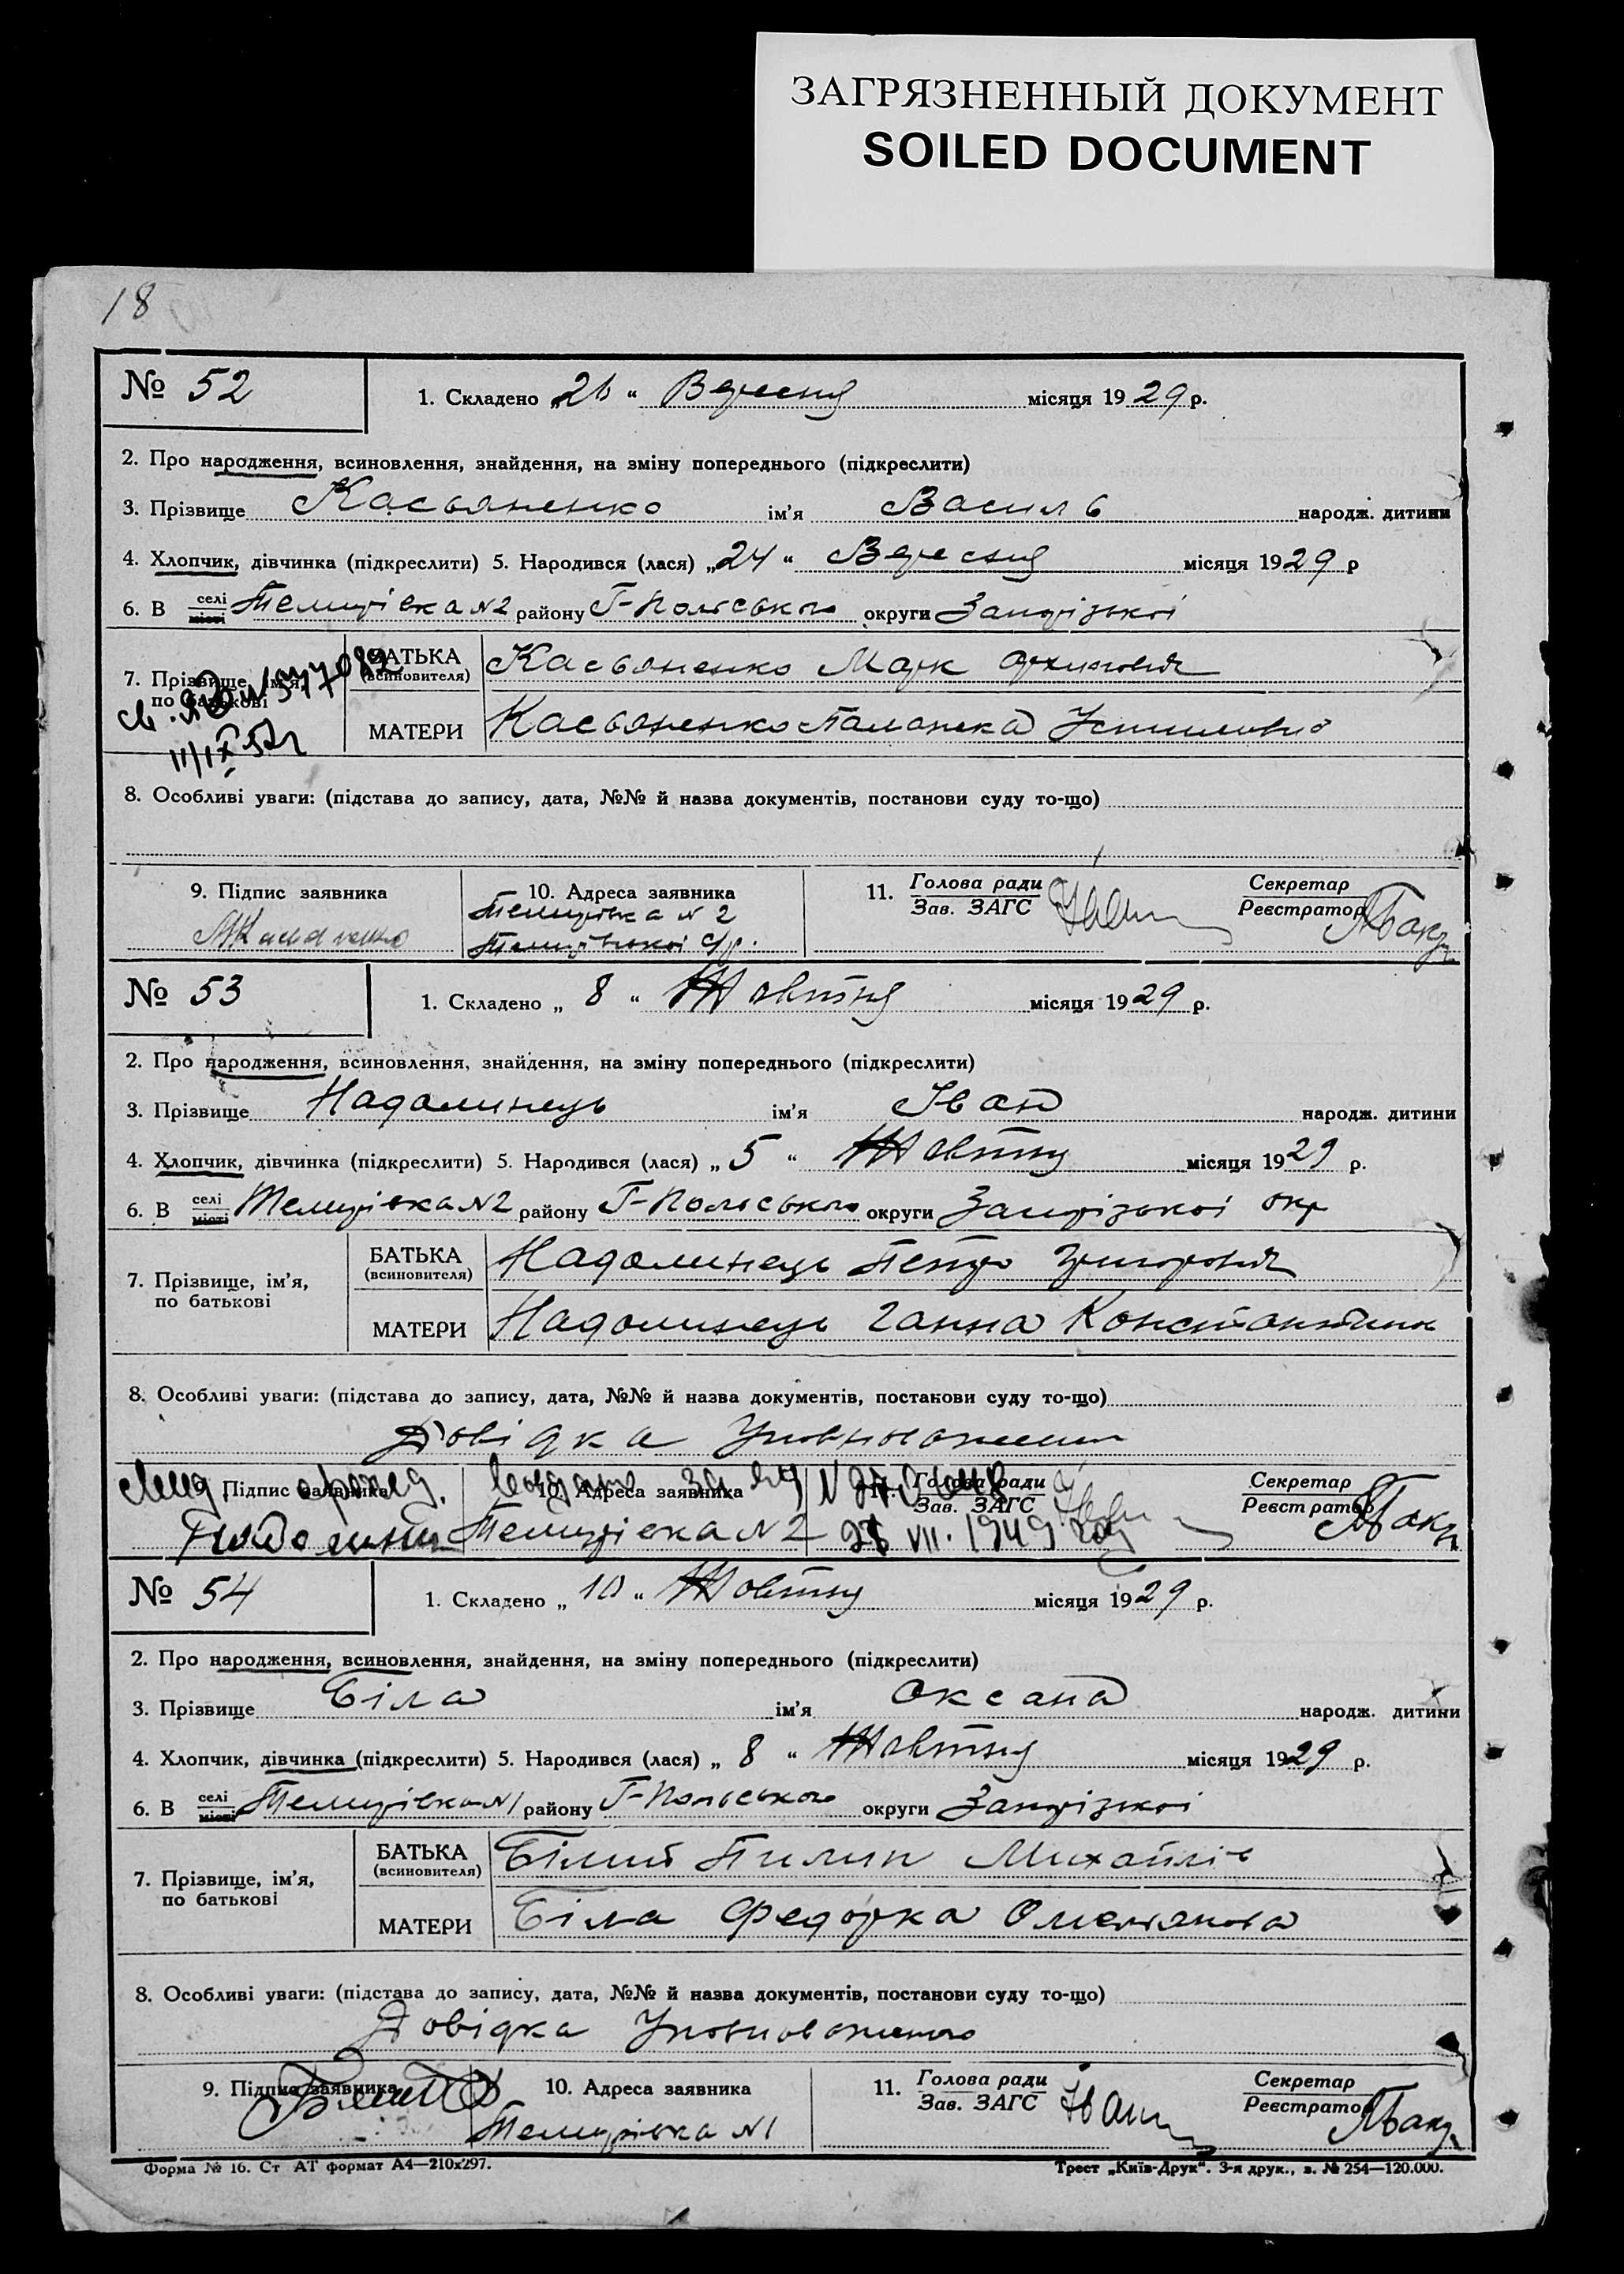 ЗАГРЯЗНЕННЫЙ ДОКУМЕНТ
SOILED DOCUMENT
18
№ 52
1. Складено „26“ Вересня місяця 1929 р.
2. Про народження, всиновлення, знайдення, на зміну попереднього (підкреслити)
3. Прізвище Касьяненко ім'я Василь народж. дитини
4. Хлопчик, дівчинка (підкреслити) 5. Народився (лася) „24“ Вересня місяця 1929 р
6. В селі місті Темирівка №2 району Г-Польського округи Запорізької
7. Прізвище, ім'я, по батькові
БАТЬКА (всиновителя) Касьяненко Марк Архипович
МАТЕРИ Касьяненко Палажка
8. Особливі уваги: (підстава до запису, дата, №№ й назва документів, постанови суду то-що)
9. Підпис заявника
10. Адреса заявника
Темирівка №2
Темирівської с/р.
11. Голова ради Зав. ЗАГС
Секретар Реєстратор
№ 53
1. Складено „8“ Жовтня місяця 1929 р.
2. Про народження, всиновлення, знайдення, на зміну попереднього (підкреслити)
3. Прізвище Надолинець ім'я Іван народж. дитини
4. Хлопчик, дівчинка (підкреслити) 5. Народився (лася) „5“ Жовтня місяця 1929 р.
6. В селі місті Темирівка №2 району Г-Польського округи Запорізької окр
7. Прізвище, ім'я, по батькові
БАТЬКА (всиновителя) Надолинець Петро Григорович
МАТЕРИ Надолинець Ганна Константинів
8. Особливі уваги: (підстава до запису, дата, №№ й назва документів, постанови суду то-що)
Довідка Уповноваженого
9. Підпис заявника
10. Адреса заявника
Темирівка №2
VII. 1949
11. Голова ради Зав. ЗАГС
Секретар Реєстратор
№ 54
1. Складено „10“ Жовтня місяця 1929 р.
2. Про народження, всиновлення, знайдення, на зміну попереднього (підкреслити)
3. Прізвище Біла ім'я Оксана народж. дитини
4. Хлопчик, дівчинка (підкреслити) 5. Народився (лася) „8“ Жовтня місяця 1929 р.
6. В селі місті Темирівка №1 району Г-Польського округи Запорізької
7. Прізвище, ім'я, по батькові
БАТЬКА (всиновителя) Білий Пилип Михайлів
МАТЕРИ Біла Федорка Омелянова
8. Особливі уваги: (підстава до запису, дата, №№ й назва документів, постанови суду то-що)
Довідка Уповноваженого
9. Підпис заявника
10. Адреса заявника
Темирівка №1
11. Голова ради Зав. ЗАГС
Секретар Реєстратор
Форма № 16. Ст АТ формат А4—210х297.
Трест „Київ-Друк“. 3-я друк., з. № 254—120.000.